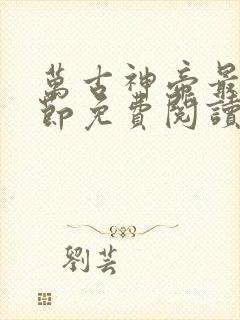 萬古神帝最
節免費閱讀
劉芸